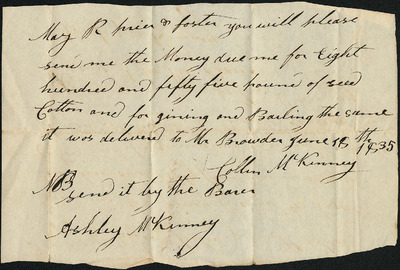 Mary R prier & foster you will please
send me the Money due me for Eight
hundred and fifty five pound of seed
Cotton and for gining and Bailing the same
it was delivered to Mr Browder June 18th 1835
Collin McKinney
NB
send it by the Barer
Ashley McKinney